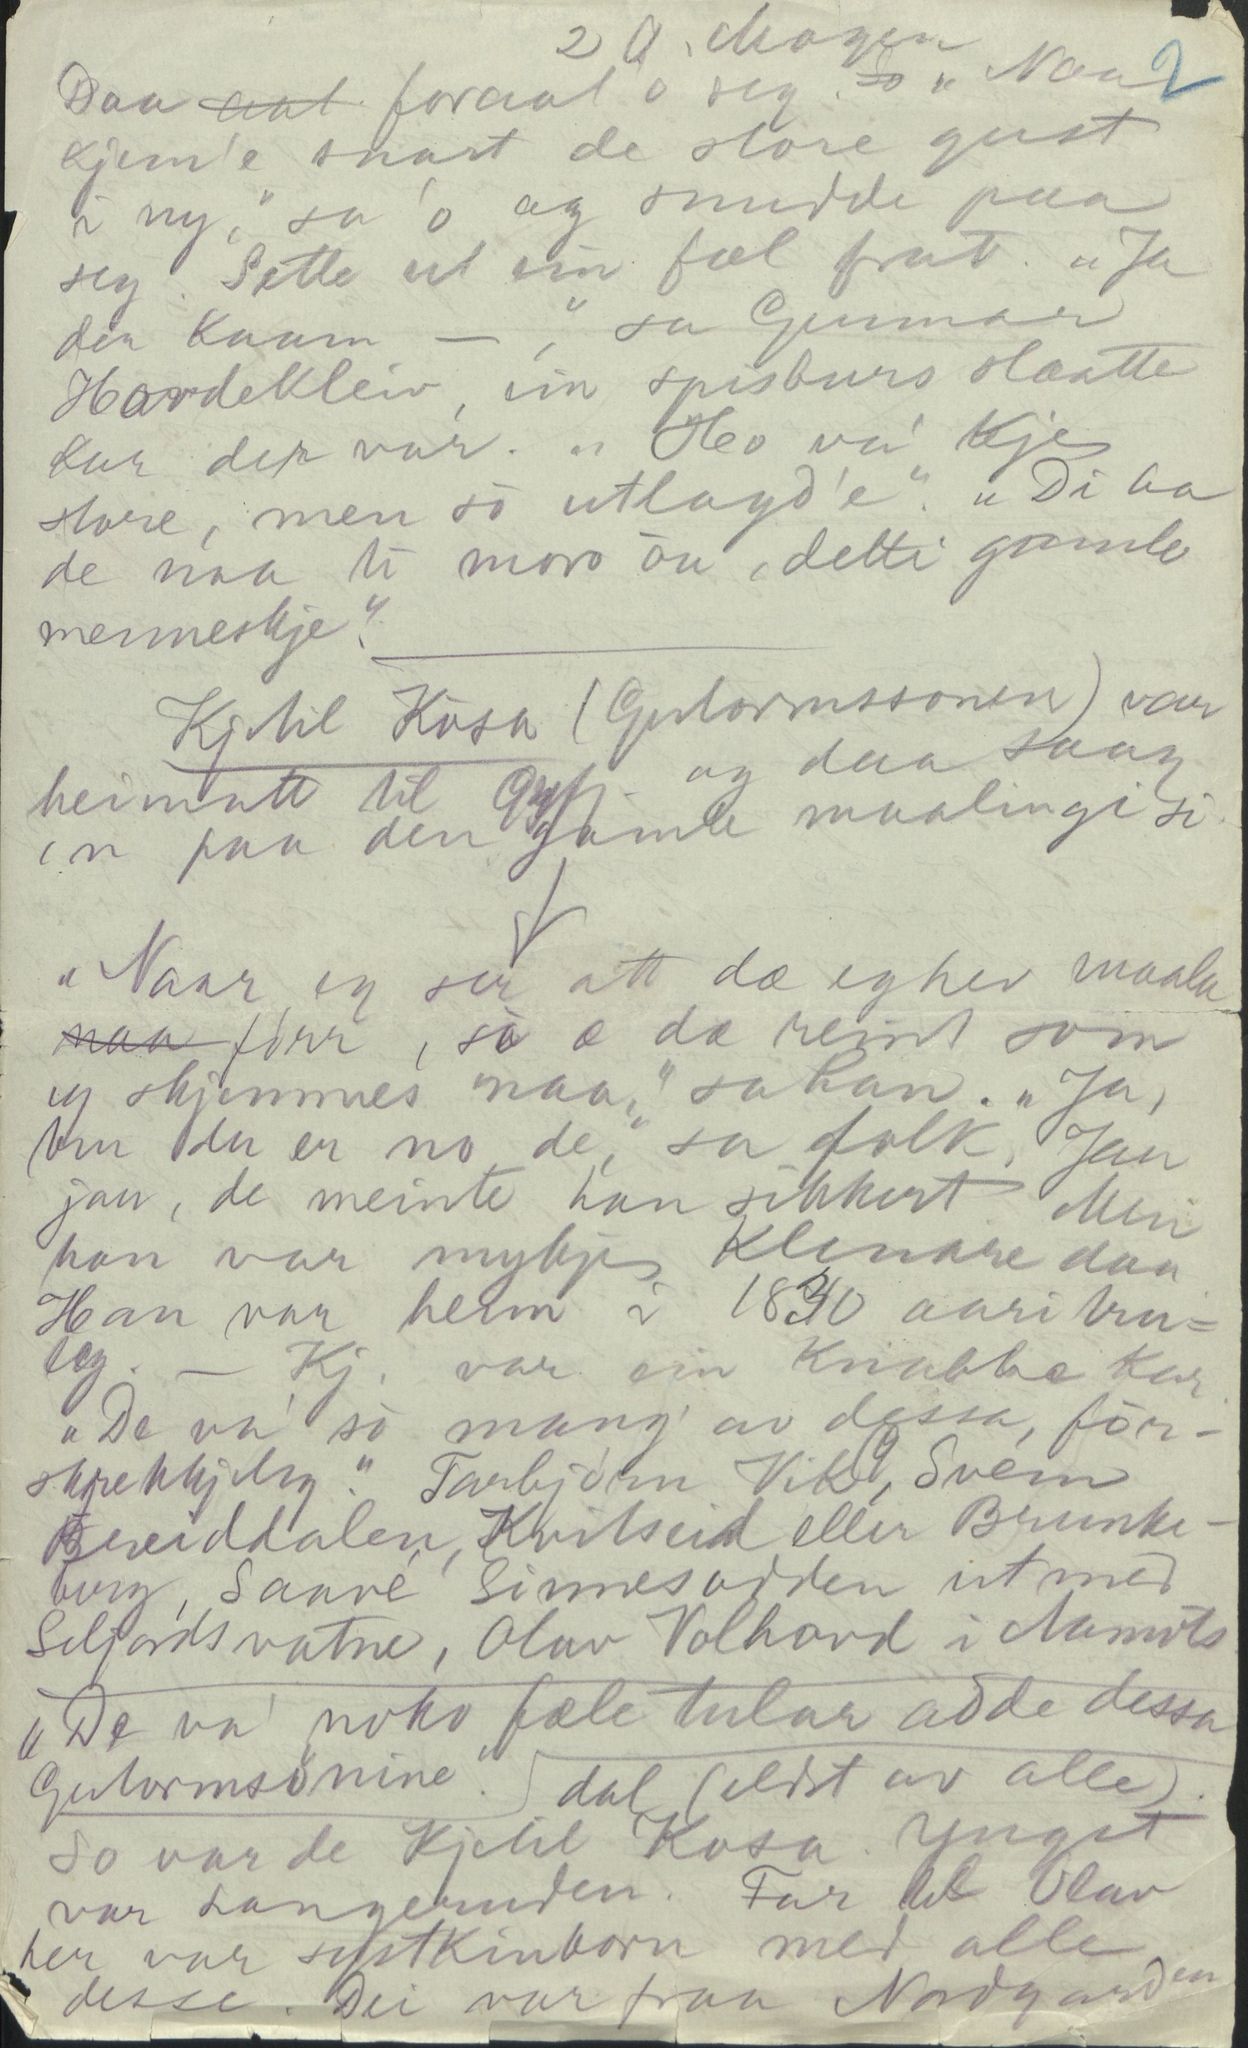 2 A. Mogen 2
Daa aat foraat o seg. So „Naa
kjem'e snart de store gust
i ny," sa 'o og snudde paa
seg. Sette ut ein fæl frat. „Ja
den kaam —," sa Gunnar
Hovdekleiv, ein spisburs slaatte
kar der var. „Ho va' kje
store, men so utlagd'e". „Di aa
de naa ti moro õu, detti gamle
menneskje".
Kjetil Kosa (Gutormssonen) var
heimatt til og daa saag
in paa den gamle maalingi si.
„Naar eg ser att dæ eg hev maala
naa förr, so æ dæ reint som
eg skjemmes naa," sa han. „Ja,
tru du er no de," sa folk. Jau
jau, de meinte han sikkert Men
han var mykje klenare daa
Han var heim i 1840 aari tru=
leg. — Kj. var ein knabbe kar
„De va' so mang' av dessa, för-
skrekkjeleg." Tarbjörn Vik, Svein
Breiddalen, Kvitseid eller Brunke-
berg, Saave Sinnesodden ut med
Seljordsvatne, Olav Volhovd i Aamots
„De va' noko fæle tular adde dessa
Gutormsönine". dal (eldst av alle).
So var de Kjetil Kosa. Yngst
var Langeruden. Far til Olav
her var systkinborn med alle
desse. Dei var fraa Nordgarden